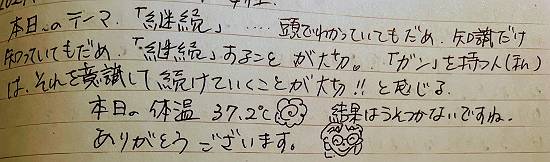 本日のテーマ.「継続」‥‥ 頭でわかっていてもだめ.知識だけ
知っていてもだめ.「継続」することが大切。.「ガン」を持つ人(私)
は、それを意識して続けていくことが大切!!と感じる.
本日の体温 37.2℃ 結果はうそつかないですね.
ありがとうございます。